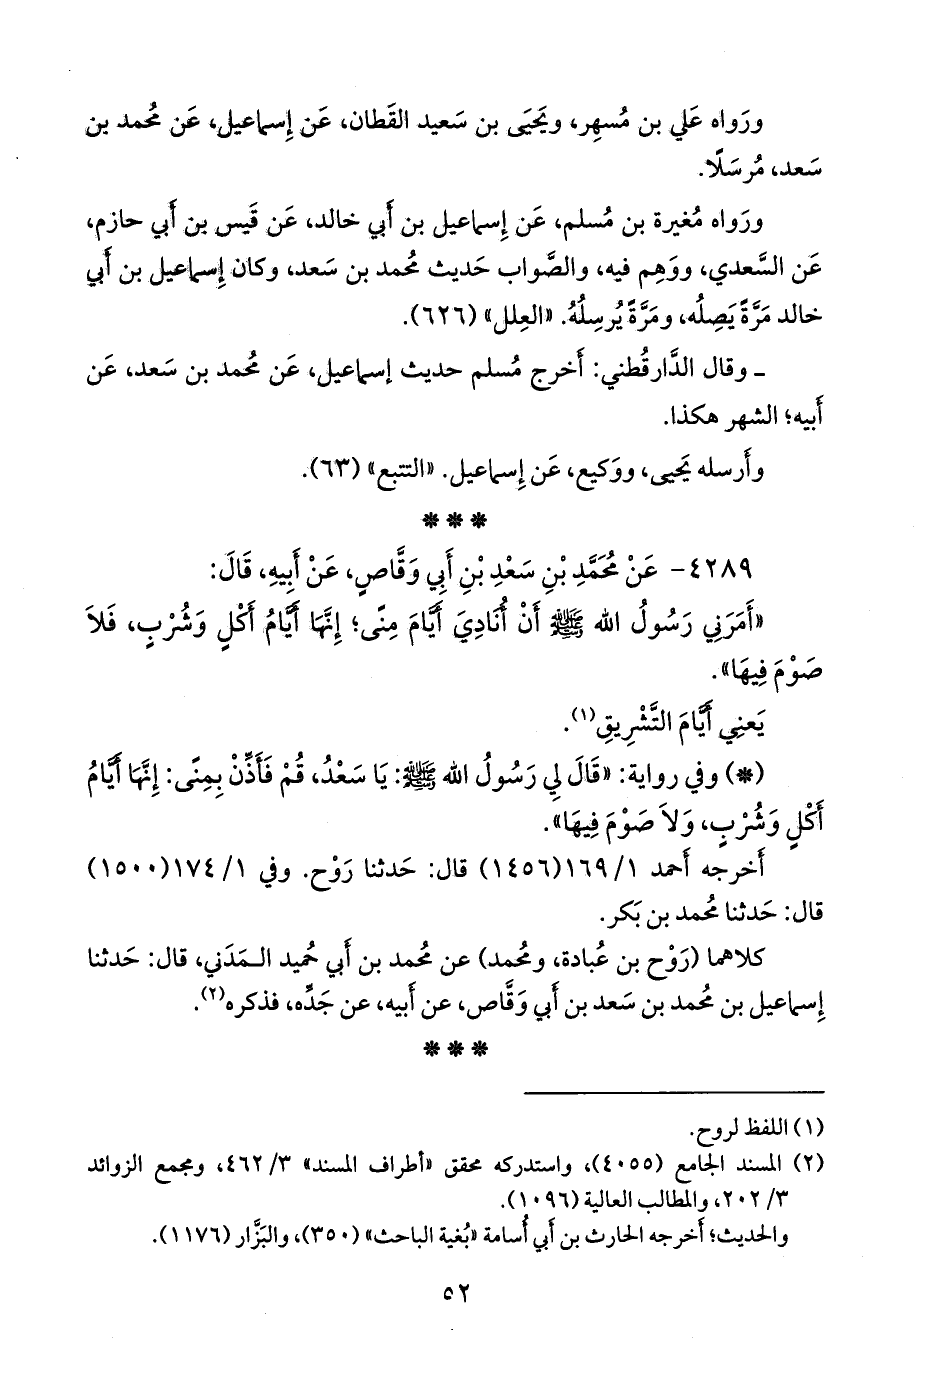 ورَواه عَلي بن مُسهِر، ويَحيَى بن سَعيد القَطان، عَن إِسماعيل، عَن مُحمد بن
سَعد، مُرسَلًا.
ورَواه مُغيرة بن مُسلم، عَن إِسماعيل بن أَبي خالد، عَن قَيس بن أَبي حازم،
عَن السَّعدي، ووَهِم فيه، والصَّواب حَديث مُحمد بن سَعد، وكان إِسماعيل بن أَبي
خالد مَرَّةً يَصِلُه، ومَرَّةً يُرسِلُهُ. «العِلل» (٦٢٦).
ـ وقال الدَّارقُطني: أَخرج مُسلم حديث إسماعيل، عَن مُحمد بن سَعد، عَن
أَبيه؛ الشهر هكذا.
وأَرسله يَحيى، ووَكيع، عَن إِسماعيل. «التتبع» (٦٣).
* * *
٤٢٨٩- عَنْ مُحَمَّدِ بْنِ سَعْدِ بْنِ أَبِي وَقَّاصٍ، عَنْ أَبِيهِ، قَالَ:
«أَمَرَنِي رَسُولُ الله ﷺ أَنْ أُنَادِيَ أَيَّامَ مِنًى؛ إِنَّهَا أَيَّامُ أَكْلٍ وَشُرْبٍ، فَلاَ
صَوْمَ فِيهَا».
يَعنِي أَيَّامَ التَّشْرِيقِ(١).
(*) وفي رواية: «قَالَ لِي رَسُولُ الله ﷺ: يَا سَعْدُ، قُمْ فَأَذِّنْ بِمِنًى: إِنَّهَا أَيَّامُ
أَكْلٍ وَشُرْبٍ، وَلاَ صَوْمَ فِيهَا».
أَخرجه أَحمد ١/ ١٦٩(١٤٥٦) قال: حَدثنا رَوْح. وفي ١/ ١٧٤(١٥٠٠)
قال: حَدثنا مُحمد بن بَكر.
كلاهما (رَوْح بن عُبادة، ومُحمد) عن محمد بن أَبي حُميد الـمَدَني، قال: حَدثنا
إِسماعيل بن مُحمد بن سَعد بن أَبي وَقَّاص، عن أَبيه، عن جَدِّه، فذكره(٢).
* * *
(١) اللفظ لروح.
(٢) المسند الجامع (٤٠٥٥)، واستدركه محقق «أطراف المسند» ٣/ ٤٦٢، ومجمع الزوائد
٣/ ٢٠٢، والمطالب العالية (١٠٩٦).
والحديث؛ أَخرجه الحارث بن أَبي أُسامة «بُغية الباحث» (٣٥٠)، والبَزَّار (١١٧٦).
٥٢